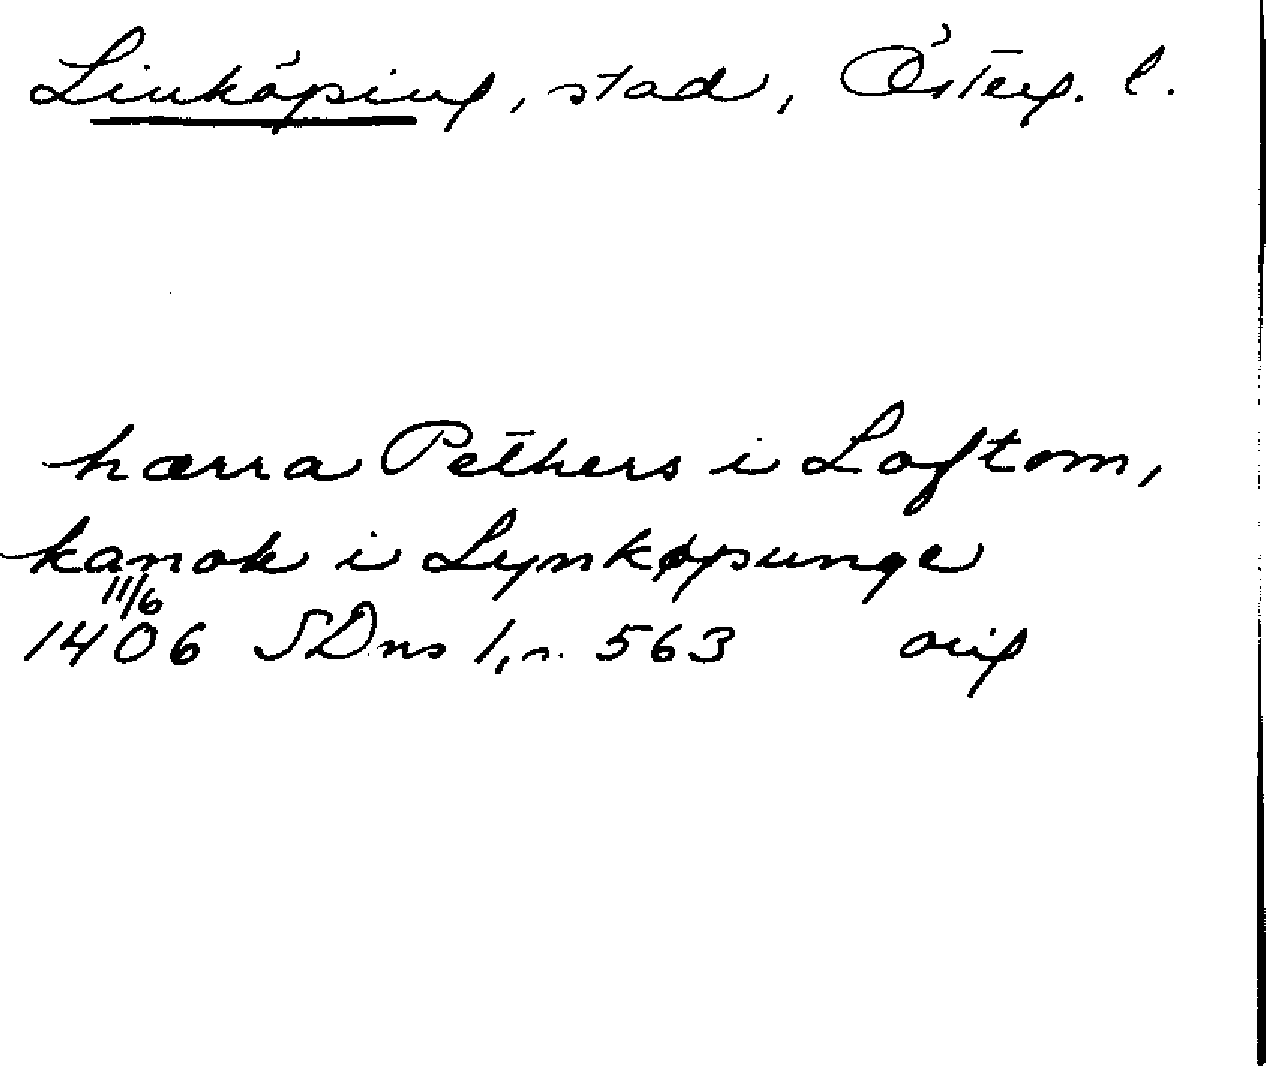 Linköping, stad, Österg. l.
hærra Pethers i Loftom,
kanok i Lynkøpunge
11/6
1406 SDns 1, n. 563 orig